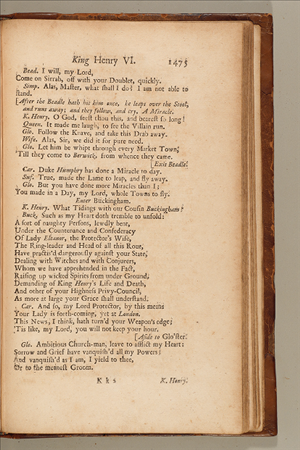 King Henry VI. 1475
Bead. I will, my Lord,
Come on Sirrah, off with your Doublet, quickly.
Simp. Alas, Master, what shall I do? I am not able to
stand.
[After the Beadle hath hit him once, he leaps over the Stool,
and runs away; and they follow, and cry, A Miracle.
K. Henry. O God, seest thou this, and bearest so long?
Queen. It made me laugh, to see the Villain run.
Glo. Follow the Knave, and take this Drab away.
Wife. Alas, Sir, we did it for pure need.
Glo. Let him be whipt through every Market Town,
'Till they come to Berwick, from whence they came.
[Exit Beadle.
Car. Duke Humphry has done a Miracle to day.
Suf. True, made the Lame to leap, and fly away.
Glo. But you have done more Miracles than I;
You made in a Day, my Lord, whole Towns to fly.
Enter Buckingham.
K. Henry. What Tidings with our Cousin Buckingham?
Buck. Such as my Heart doth tremble to unfold:
A sort of naughty Persons, lewdly bent,
Under the Countenance and Confederacy
Of Lady Eleanor, the Protector's Wife,
The Ring-leader and Head of all this Rout,
Have practis'd dangerously against your State,
Dealing with Witches and with Conjurers,
Whom we have apprehended in the Fact,
Raising up wicked Spirits from under Ground,
Demanding of King Henry's Life and Death,
And other of your Highness Privy-Council,
As more at large your Grace shall understand.
Car. And so, my Lord Protector, by this means
Your Lady is forth-coming, yet at London.
This News, I think, hath turn'd your Weapon's edge;
'Tis like, my Lord, you will not keep your hour.
[Aside to Glo'ster.
Glo. Ambitious Church-man, leave to afflict my Heart:
Sorrow and Grief have vanquish'd all my Powers;
And vanquish'd as I am, I yield to thee,
Or to the meanest Groom.
K k 2 K. Henry.